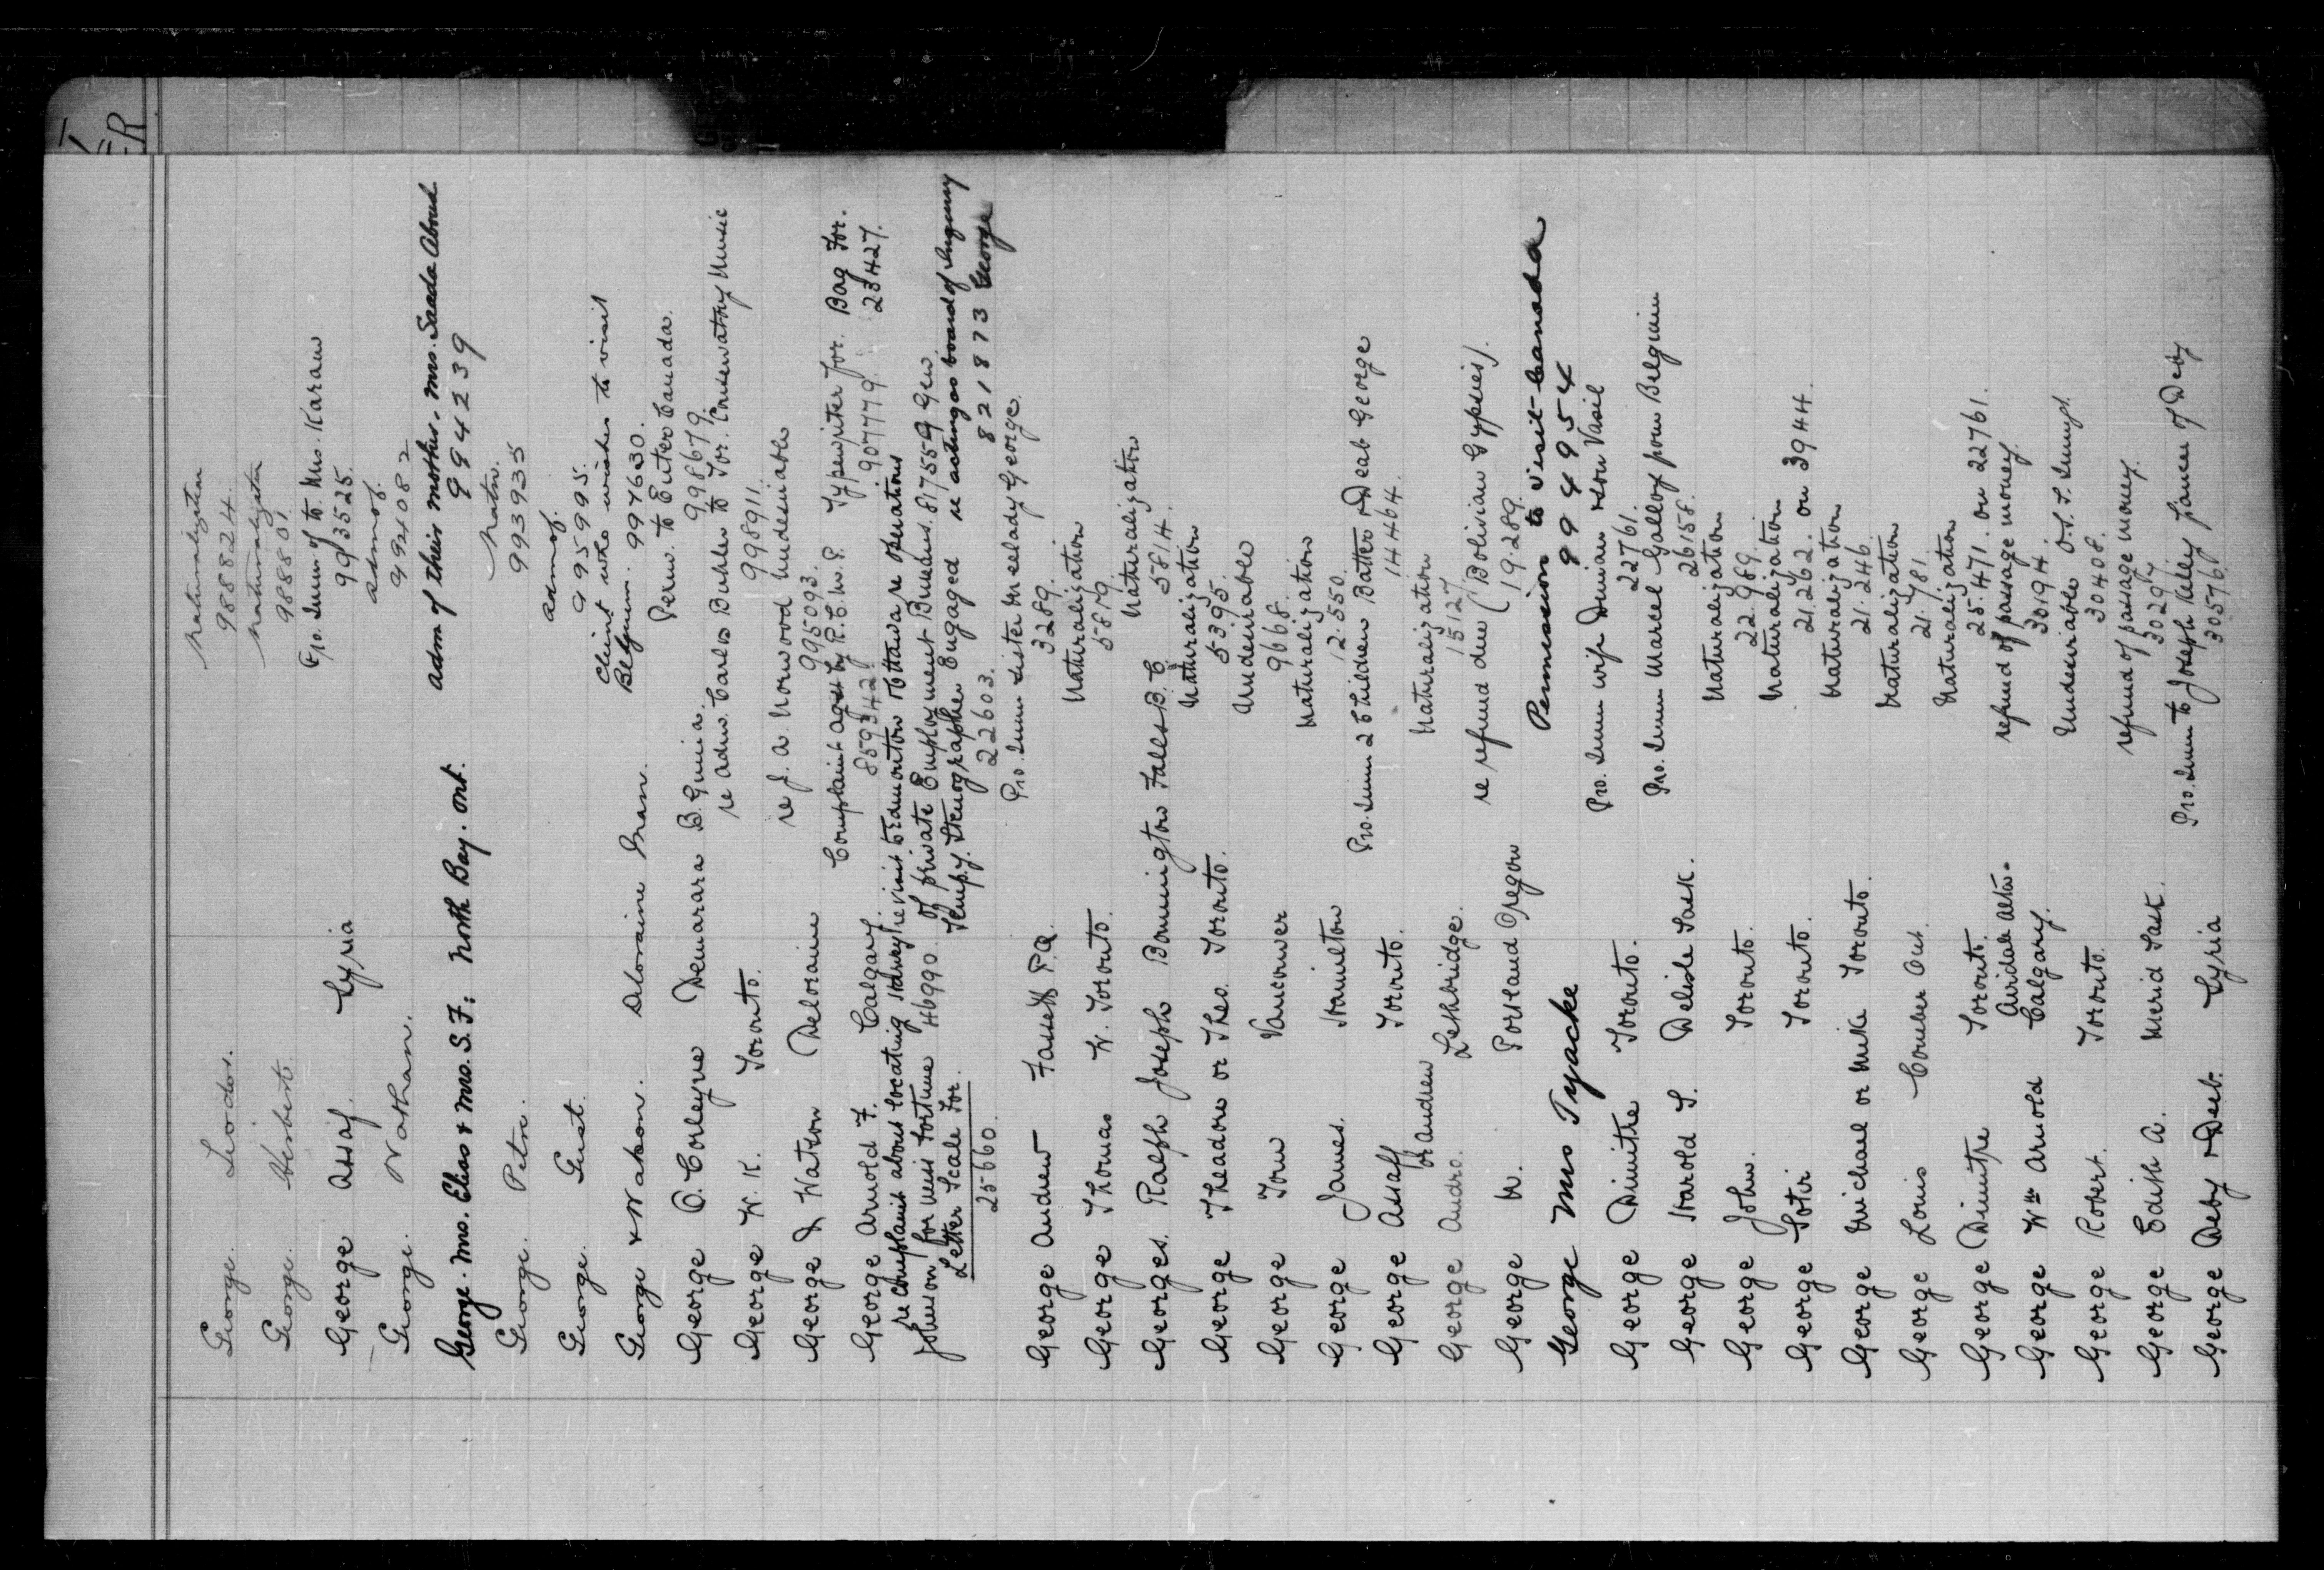 George. Leodor. Naturalization 988824.
George. Herbert. Naturalization 988801
George Assaf. Syria Pro. Imm. of to Mrs. Karam 993525.
George. Nathan. admn of. 994082
George. Mrs. Elias & Mrs. S.F. North Bay. Ont. adm of their mother. Mrs. Saada Aboud 994239
George. Petre. Natn. 993935
George. Gust. admn of. 995995.
George & Watson. Deloraine Man. Client who wishes to visit Belgium. 997630.
George D. Corleyne Demarara B. Guinia. Perm. to Enter Canada. 998679.
George W. K. Toronto. re adm. Carlos Buhler to Tor. Conservatory Music 998911.
George & Watson Deloraine re J. A. Norwood undesirable 995093.
George Arnold F. Calgary. Complaint agst by R.C.M.P. 859342 Typewriter for. 907779 Bag For. 23427.
re complaint about locating Harvey re visit to Edmonton & Ottawa re operations
Johnson for Miss Fortune 46990. of private Employment Bureaus. 817559 Gen.
Letter Scale For. 25660. Temp'y. Stenographer Engaged 22603. re acting as board of Inquiry 821873 George
George Andrew Fassett P.Q. Pro. Imm sister Melady George. 3289.
George Thomas W. Toronto. Naturalization 5879.
Georges. Ralph Joseph Bonnington Falls B.C. Naturalization 5814.
George Theadore or Theo. Toronto. Naturalization 5395.
George Tom Vancouver Undesirable 9668.
George James. Hamilton Naturalization 12.550.
George Assaff Toronto. Pro. Imm 2 children Batter & Deab George 14464.
George Andro. or Andrew Lethbridge. Naturalization 15127
George M. Portland Oregon re refund due (Bolivian Gypsies). 19.289.
George Mrs Tyacke Permission to visit Canada 994954
George Dimitre Toronto. Pro. Imm wife Dimian & son Vasil 22761.
George Harold S. Delisle Sask. Pro. Imm Marcel Galloy from Belgium 26158.
George John. Toronto. Naturalization 22.989.
George Sotir Toronto. Naturalization 21.262. on 3944.
George Michael or Mike Toronto. Naturalization 21.246.
George Louis Comber Ont. Naturalization 21.781.
George Dimitre Toronto. Naturalization 25.471. on 22761.
George Wm Arnold Airdale Alta. Calgary. refund of passage money. 30194.
George Robert. Toronto. Undesirable O.S.S. Immgt. 30408.
George Edith A. Merid Sask. refund of passage money. 30297
George Deby & Deeb. Syria Pro. Imm to Joseph Kelly fiancee of Deby 30576